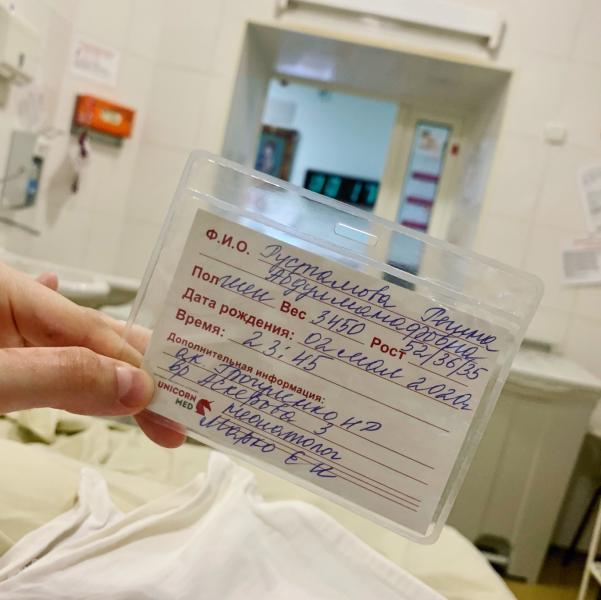 Ф.И.О. Рустамова Рауна
Абдулмамадовна
Пол жен Вес 3450 Рост 52/36/35
Дата рождения: 02 мая 2020г
Время: 23:45
Дополнительная информация:
ак. Почиленко НР
вр Аскерова З
неонатолог
Марко Е И
UNICORN
MED